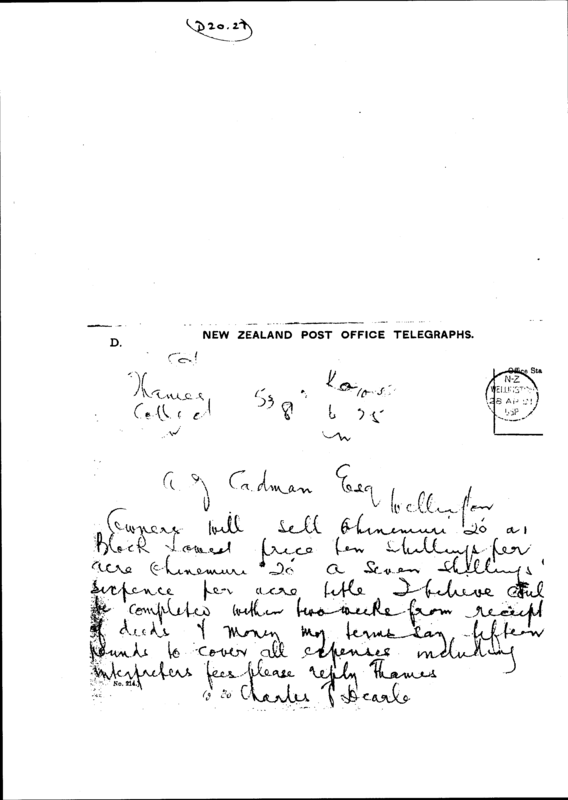 D20.27
NEW ZEALAND POST OFFICE TELEGRAPHS.
D.
Office Sta
Thames
N-Z
WELLINGTON
28 AP
Collect
A J Cadman Esq
Wellington
Owners will sell Ohinemuri 20
Block Lowest price ten shillings per
acre Ohinemuri 20 a Seven Shillings
sixpence per acre title I believe
be completed within two weeks from receipt
of deeds & money my terms say fifteen
pounds to cover all expenses including
interpreters fees please reply Thames
No. 214.
Charles J Dearle